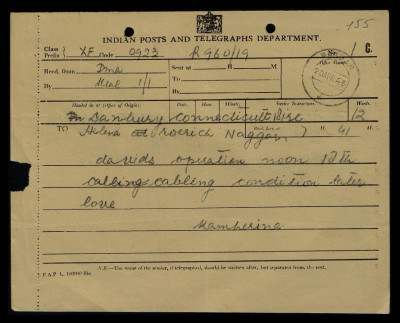 155
INDIAN POSTS AND TELEGRAPHS DEPARTMENT.
Class Prefix XF Code 0923 R960/19 No. 1 C.
Recd. from Dma Sent at H. M. Office Stamp
By To
By
Handed in at (Office of Origin). Date. Hour. Minute. Service Instructions. Words.
Danbury Connecticutt 12
TO Helena Roerich Naggar 41
davids operation noon 12th
cabling cabling condition later
love
N.B.—The name of the sender, if telegraphed, should be written after, but separated from, the text.